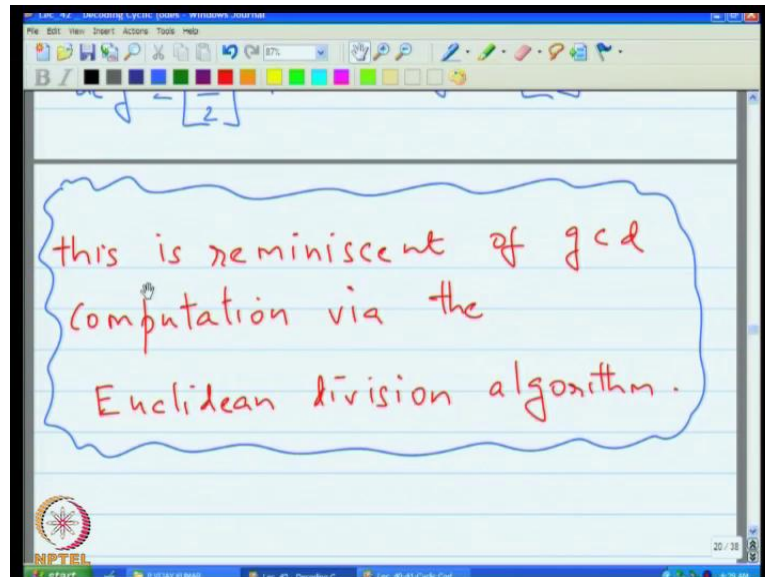 Lec_42 _ Decoding Cyclic Codes - Windows Journal
File Edit View Insert Actions Tools Help
87%
B I
2
this is reminiscent of gcd
computation via the
Euclidean division algorithm.
NPTEL
20 / 38
start